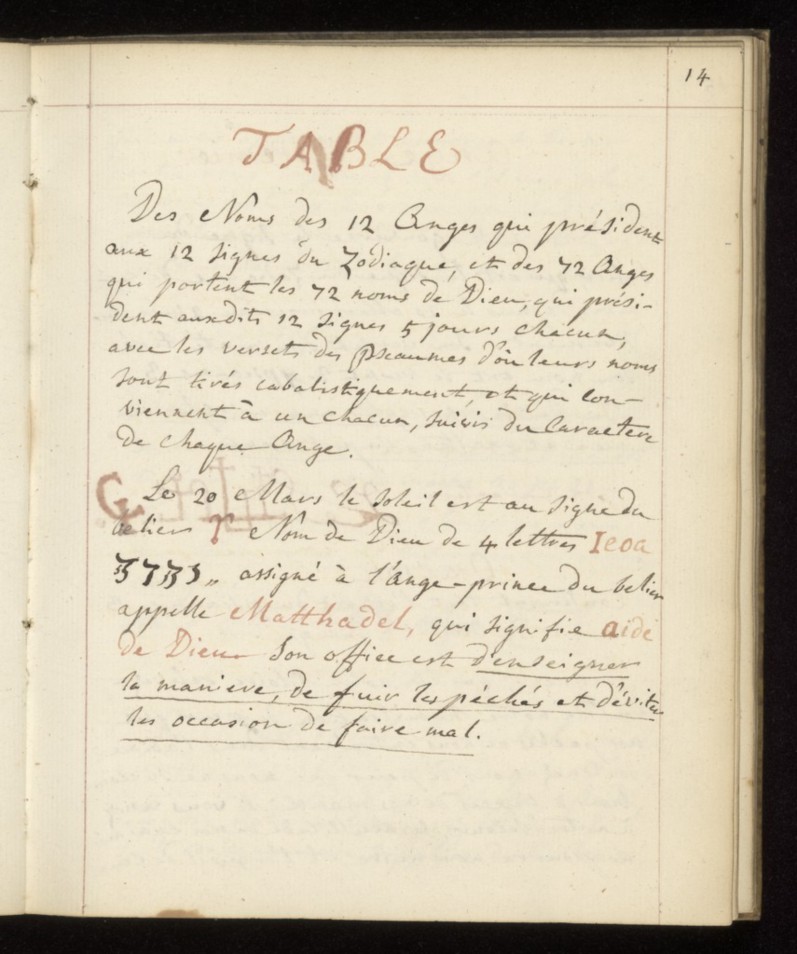 14
TABLE
Des Noms des 12 Anges qui président
aux 12 signes du Zodiaque, et des 72 Anges
qui portent les 72 noms de Dieu, qui prési-
dent auxdits 12 signes 5 jours chacun,
avec les versets des Pseaumes d'où leurs noms
sont tirés cabalistiquement, et qui con-
viennent à un chacun, suivis du Caractere
de chaque Ange.
Le 20 Mars le soleil est au signe du
belier ♈ Nom de Dieu de 4 lettres Ieoa
assigné à l'Ange-prince du belier
appelle Matthadel, qui signifie aide
de Dieu Son office est d'enseigner
la maniere, de fuir les péchés et d'éviter
les occasion de faire mal.